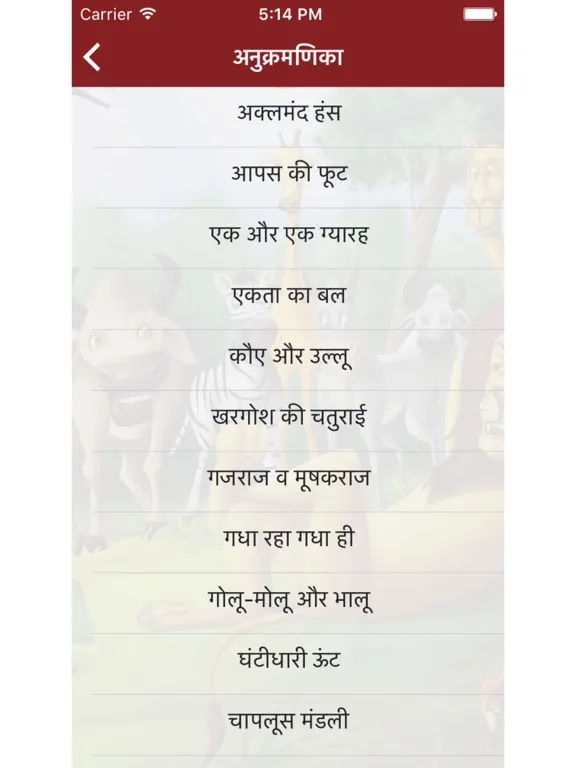 Carrier 5:14 PM
अनुक्रमणिका
अक्लमंद हंस
आपस की फूट
एक और एक ग्यारह
एकता का बल
कौए और उल्लू
खरगोश की चतुराई
गजराज व मूषकराज
गधा रहा गधा ही
गोलू-मोलू और भालू
घंटीधारी ऊंट
चापलूस मंडली